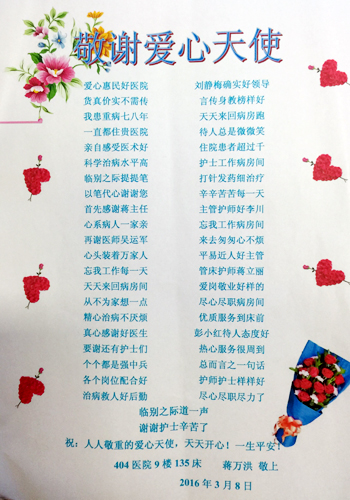 敬谢爱心天使
爱心惠民好医院
货真价实不需传
我患重病七八年
一直都住贵医院
亲自感受医术好
科学治病水平高
临别之际提提笔
以笔代心谢谢您
首先感谢蒋主任
心系病人一家亲
再谢医师吴运军
心头装着万家人
忘我工作每一天
天天来回病房间
从不为家想一点
精心治病不厌烦
真心感谢好医生
要谢还有护士们
个个都是强中兵
各个岗位配合好
治病救人好后勤
刘静梅确实好领导
言传身教榜样好
天天来回病房跑
待人总是微微笑
住院患者超过千
护士工作病房间
打针发药细治疗
辛辛苦苦每一天
主管护师好李川
忘我工作病房间
来去匆匆心不烦
平易近人好主管
管床护师蒋立丽
爱岗敬业好样的
尽心尽职病房间
优质服务到床前
彭小红待人态度好
热心服务很周到
总而言之一句话
护师护士样样好
尽心尽职尽力了
临别之际道一声
谢谢护士辛苦了
祝：人人敬重的爱心天使，天天开心！一生平安！
404 医院 9 楼 135 床 蒋万洪 敬上
2016 年 3 月 8 日